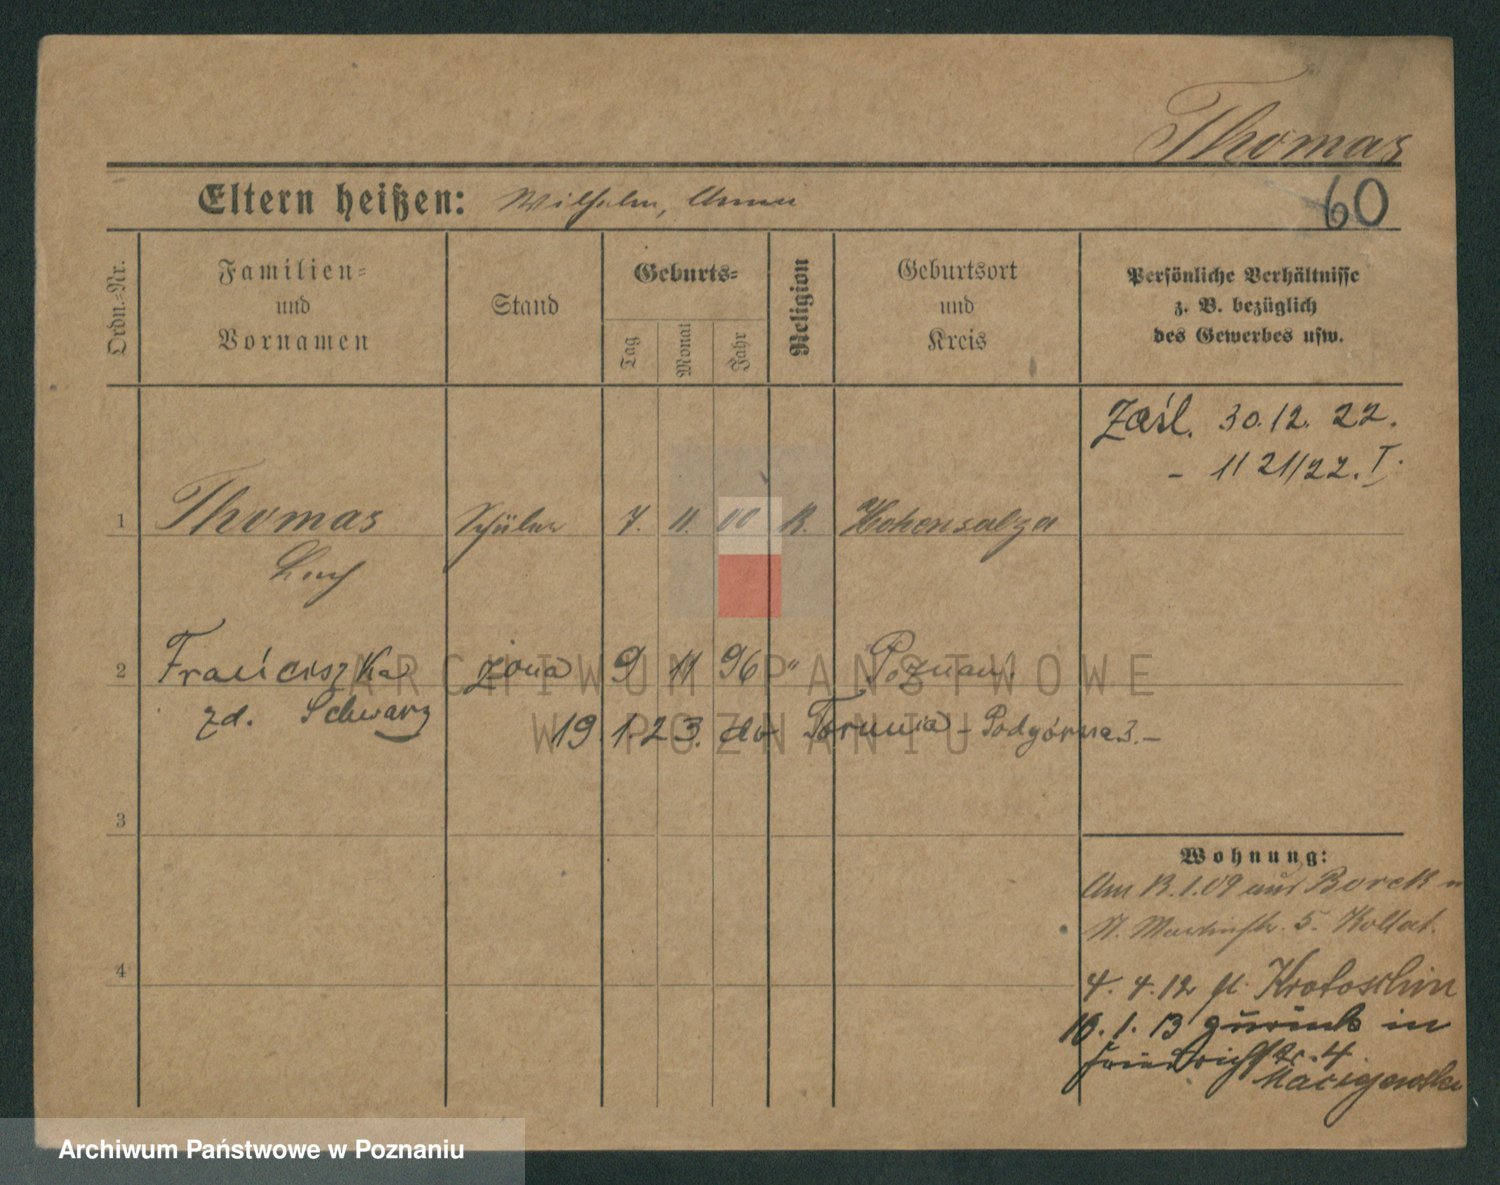 Thomas
60
Eltern heißen: Wilhelm, Anna
Ordn.-Nr.
Familien-
und
Vornamen
Stand
Geburts-
Tag
Monat
Jahr
Religion
Geburtsort
und
Kreis
Persönliche Verhältnisse
z. B. bezüglich
des Gewerbes usw.
Zaśl. 30.12. 22.
- 11 21/22. I.
1 Thomas Schüler 7. 11. 00 K. Hohensalza
2 Franciszka żona 9 11 96 " Poznań
zd. Schwarz
19.1.23. do Torunia - Podgórna 3.-
3
4
Wohnung:
Am 13.1.09 aus Borek
St. Martinstr. 5.
4. 4.12 Krotoschin
10. 1. 13 zurück in
Friedrichstr. 4.
ARCHIWUM PAŃSTWOWE
W POZNANIU
Archiwum Państwowe w Poznaniu